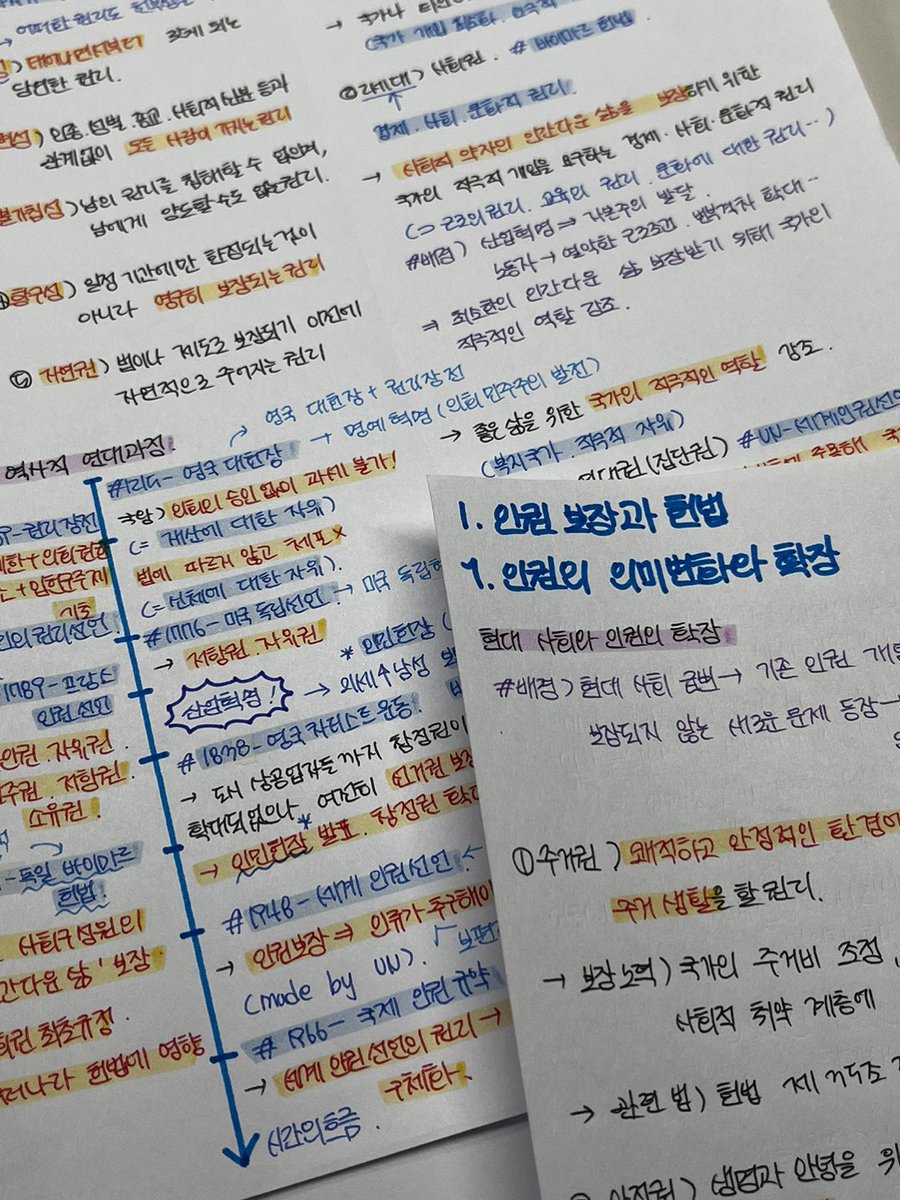 → 어떠한 권리도
) 태어나면서부터 갖게 되는
당연한 권리.
) 인종.성별.종교.사회적 신분 등과
관계없이 모든 사람이 가지는 권리
불가침성) 남의 권리를 침해할 수 없으며,
남에게 양도할 수도 없는 권리.
④ 항구성) 일정 기간에만 한정되는 것이
아니라 영구히 보장되는 권리
⑤ 자연권) 법이나 제도로 보장되기 이전에
자연적으로 주어지는 권리
→ 국가나
(국가 개입 최소화.
②2세대) 사회권. # 바이마르 헌법
경제.사회.문화적 권리.
→ 사회적 약자의 인간다운 삶을 보장하기 위한
국가의 적극적 개입을 요구하는 경제.사회.문화적 권리
(⇒ 근로의 권리. 교육의 권리. 문화에 대한 권리··)
#배경) 산업혁명 ⇒ 자본주의 발달.
노동자 → 열악한 근로조건. 빈부격차 확대··
⇒ 최소한의 인간다운 삶 보장받기 위해 국가의
적극적인 역할 강조.
→ 좋은 삶을 위한 국가의 적극적인 역할 강조.
(복지국가. 적극적 자유)
연대권(집단권) #UN-세계인권선언
역사적 연대과정
→ 영국 대헌장 + 권리장전
→ 명예혁명 (의회 민주주의 발전)
#1215- 영국 대헌장
국왕) 의회의 승인 없이 과세 불가!
(= 재산에 대한 자유)
법에 따르지 않고 체포 x
(= 신체에 대한 자유).
#1776- 미국 독립선언 → 미국 독립
→ 저항권. 자유권
산업혁명! → 여전히
* 인민헌장 (
# 1838- 영국 차티스트 운동.
→ 도시 상공업자들까지 참정권이
확대되었으나, 여전히 선거권 보장
→ 인민헌장* 발표. 참정권 확대
# 1948- 세계 인권선언 ←
→ 인권보장 ⇒ 인류가 추구해야
(made by UN). 보편
# 1966- 국제 인권 규약
→ 세계 인권 선언의 권리 →
구체화.
시간의 흐름
-권리장전
+ 의회 권한
+ 입헌군주제
기초
권리선언
1789- 프랑스
인권 선언
자유권.
주권. 저항권.
소유권.
- 독일 바이마르
헌법.
사회구성원의
간다운 삶' 보장
회권 최초규정.
러나라 헌법에 영향
1. 인권 보장과 헌법
1. 인권의 의미변화와 확장
현대 사회와 인권의 확장
#배경) 현대 사회 급변 → 기존 인권 개념
보장되지 않는 새로운 문제 등장 →
①주거권) 쾌적하고 안정적인 환경에
주거 생활을 할 권리.
→ 보장 노력) 국가의 주거비 조정,
사회적 취약 계층에
→ 관련 법) 헌법 제 35조
② 안전권) 생명과 안녕을 위